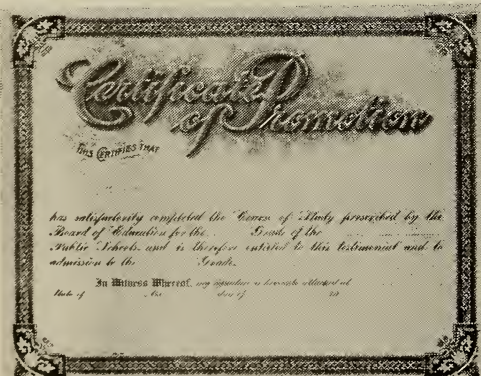 Certificate
of Promotion
THIS CERTIFIES THAT
has satisfactorily completed the Course of Study prescribed by the
Board of Education for the Grade of the
Public Schools and is therefore entitled to this testimonial and to
admission to the Grade.
In Witness Whereof, my signature is hereunto attached at
State of this day of 19